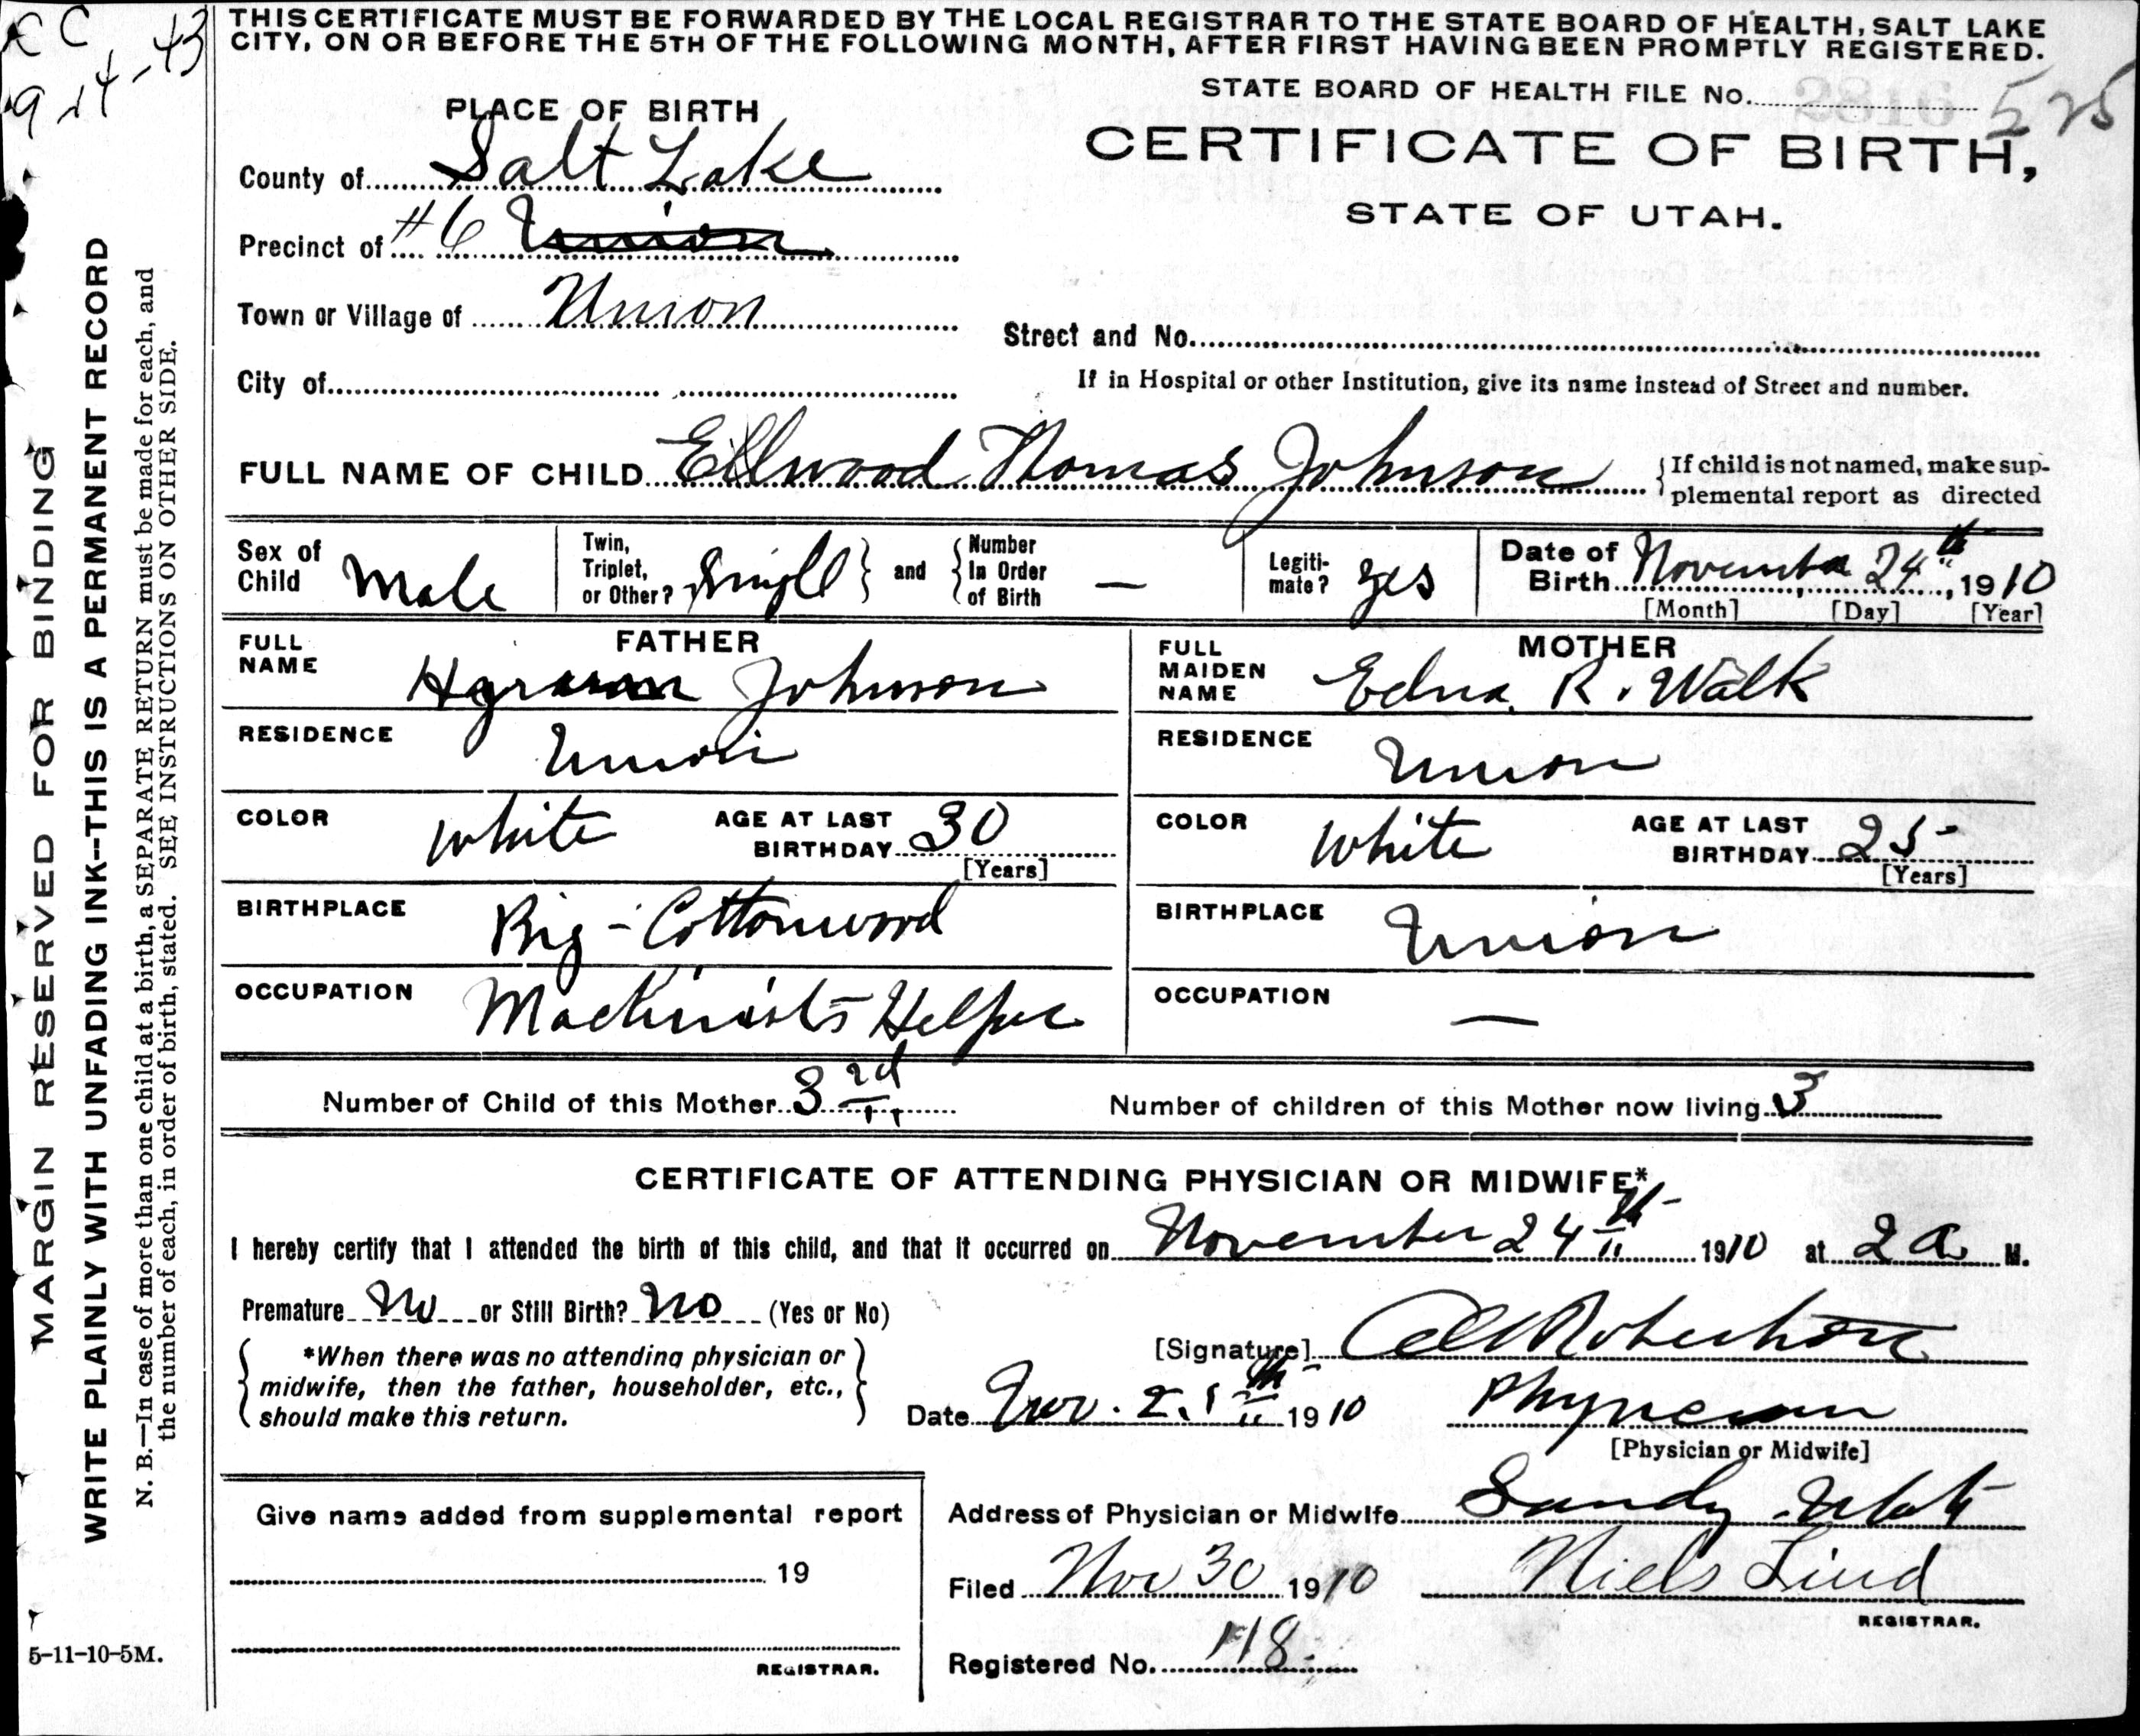 THIS CERTIFICATE MUST BE FORWARDED BY THE LOCAL REGISTRAR TO THE STATE BOARD OF HEALTH, SALT LAKE
CITY, ON OR BEFORE THE 5TH OF THE FOLLOWING MONTH, AFTER FIRST HAVING BEEN PROMPTLY REGISTERED.
STATE BOARD OF HEALTH FILE No. 525
CERTIFICATE OF BIRTH,
STATE OF UTAH.
PLACE OF BIRTH
County of Salt Lake
Precinct of #6 Union
Town or Village of Union
Street and No.
City of
If in Hospital or other Institution, give its name instead of Street and number.
FULL NAME OF CHILD Ellwood Thomas Johnson
{If child is not named, make sup-
plemental report as directed
Sex of Child Male
Twin, Triplet, or Other? Single } and { Number In Order of Birth —
Legiti-mate? yes
Date of Birth November 24th, 1910
[Month] [Day] [Year]
FATHER
FULL NAME Hyrum Johnson
RESIDENCE Union
COLOR white AGE AT LAST BIRTHDAY 30
[Years]
BIRTHPLACE Big-Cottonwood
OCCUPATION Machinists Helper
MOTHER
FULL MAIDEN NAME Edna R. Walk
RESIDENCE Union
COLOR white AGE AT LAST BIRTHDAY 25
[Years]
BIRTHPLACE Union
OCCUPATION —
Number of Child of this Mother 3rd
Number of children of this Mother now living 3
CERTIFICATE OF ATTENDING PHYSICIAN OR MIDWIFE*
I hereby certify that I attended the birth of this child, and that it occurred on November 24th 1910 at 2 a M.
Premature No or Still Birth? No (Yes or No)
{ *When there was no attending physician or
midwife, then the father, householder, etc.,
should make this return. }
[Signature] Robertson
Date Nov. 1910 Physician
[Physician or Midwife]
Give name added from supplemental report
19
REGISTRAR.
Address of Physician or Midwife Sandy Utah
Filed Nov 30 1910 Niels Lind
REGISTRAR.
Registered No. 118
MARGIN RESERVED FOR BINDING
WRITE PLAINLY WITH UNFADING INK--THIS IS A PERMANENT RECORD
N. B.—In case of more than one child at a birth, a SEPARATE RETURN must be made for each, and
the number of each, in order of birth, stated. SEE INSTRUCTIONS ON OTHER SIDE.
5-11-10-5M.